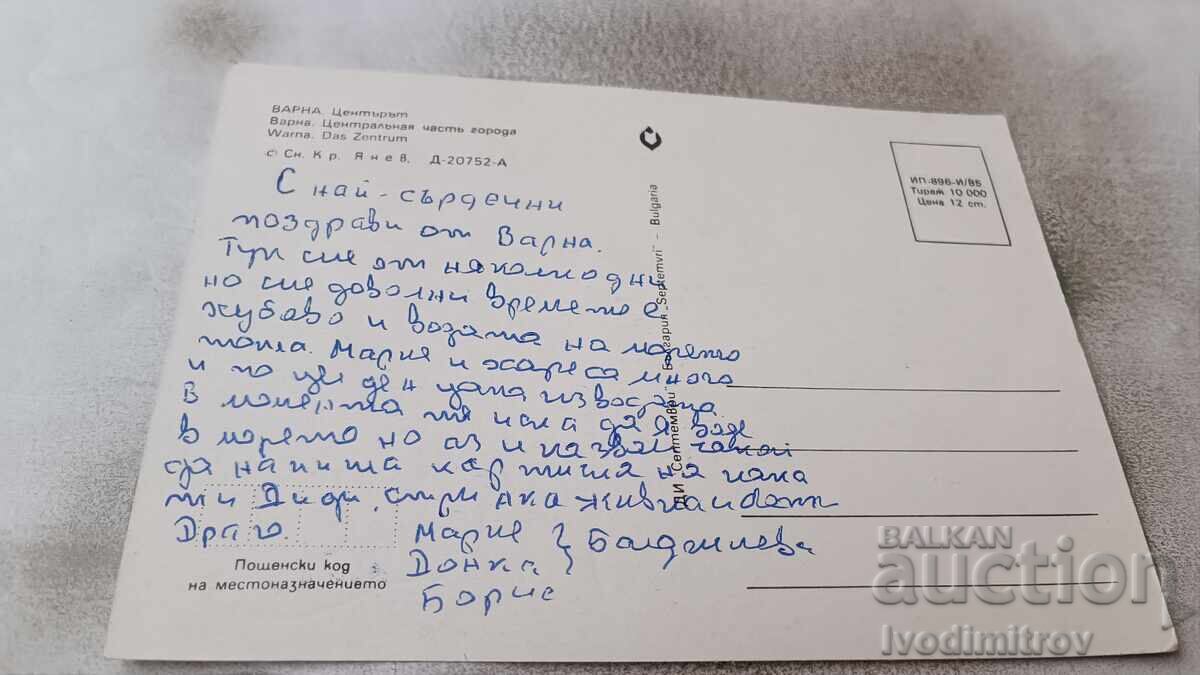 ВАРНА. Центърът
Варна. Центральная часть города
Warna. Das Zentrum
© Сн. Кр. Янев. Д-20752-А
ИП:896-И/85
Тираж 10 000
Цена 12 ст.
ДИ „Септември" България „Septemvri" – Bulgaria
С най-сърдечни
поздрави от Варна.
Тук сме от няколко дни
но сме доволни времето е
хубаво и водата на морето
топла. Мария и хареса много
и по цел ден цапа из водата
В момента тя иска да я водя
в морето но аз и казвам чакай
да напиша картичка на кака
ти Диди,
Драго.
Мария
Донка
Борис
Пощенски код
на местоназначението
BALKAN
auction
Ivodimitrov